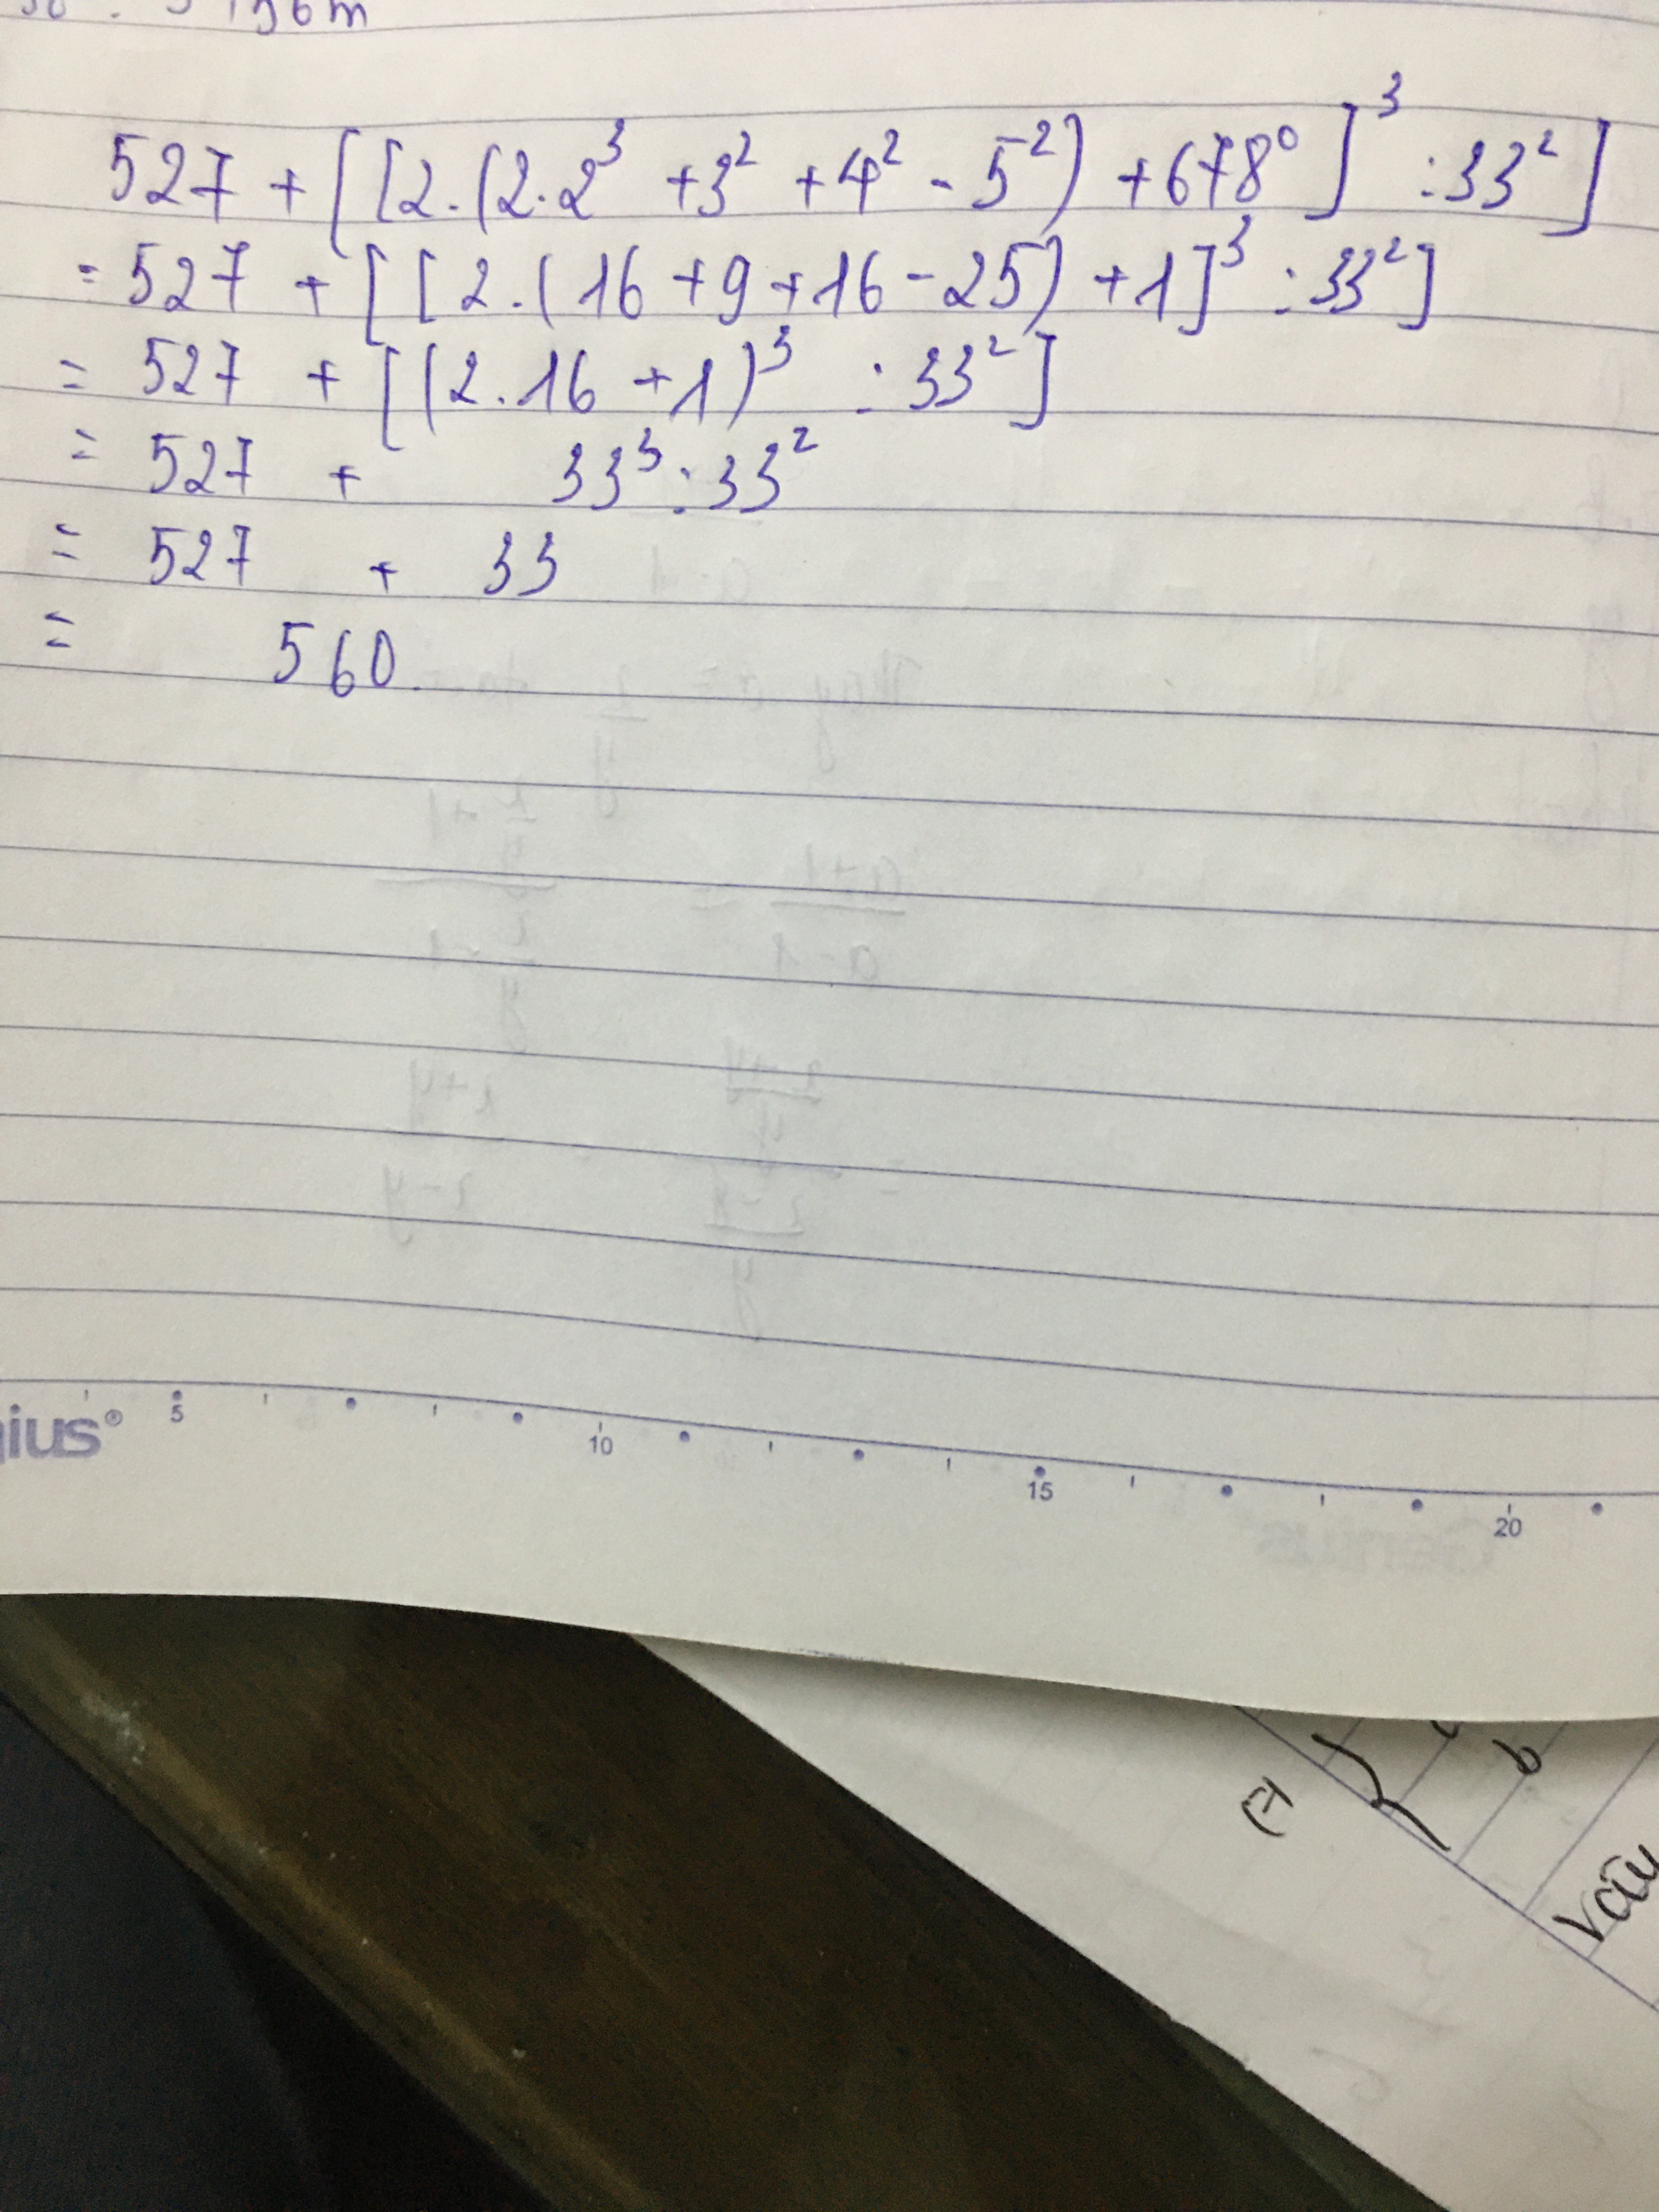 527 + [[2.(2.2³ + 3² + 4² - 5²) + 678⁰]³ : 33²]
= 527 + [[2.(16 + 9 + 16 - 25) + 1]³ : 33²]
= 527 + [(2.16 + 1)³ : 33²]
= 527 + 33³ : 33²
= 527 + 33
= 560.
5 10 15 20
b